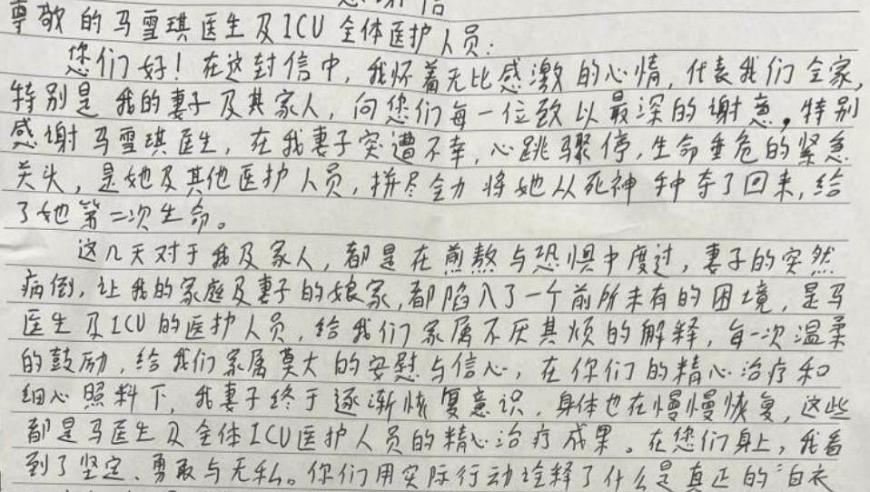 尊敬的马雪琪医生及ICU全体医护人员:
您们好!在这封信中,我怀着无比感激的心情,代表我们全家,
特别是我的妻子及其家人,向您们每一位致以最深的谢意。特别
感谢马雪琪医生,在我妻子突遭不幸,心跳骤停,生命垂危的紧急
关头,是她及其他医护人员,拼尽全力将她从死神种夺了回来,给
了她第二次生命。
这几天对于我及家人,都是在煎熬与恐惧中度过,妻子的突然
病倒,让我的家庭及妻子的娘家,都陷入了一个前所未有的困境,是马
医生及ICU的医护人员,给我们家属不厌其烦的解释,每一次温柔
的鼓励,给我们家属莫大的安慰与信心,在你们的精心治疗和
细心照料下,我妻子终于逐渐恢复意识,身体也在慢慢恢复,这些
都是马医生及全体ICU医护人员的精心治疗成果。在您们身上,我看
到了坚定、勇敢与无私。你们用实际行动诠释了什么是真正的“白衣